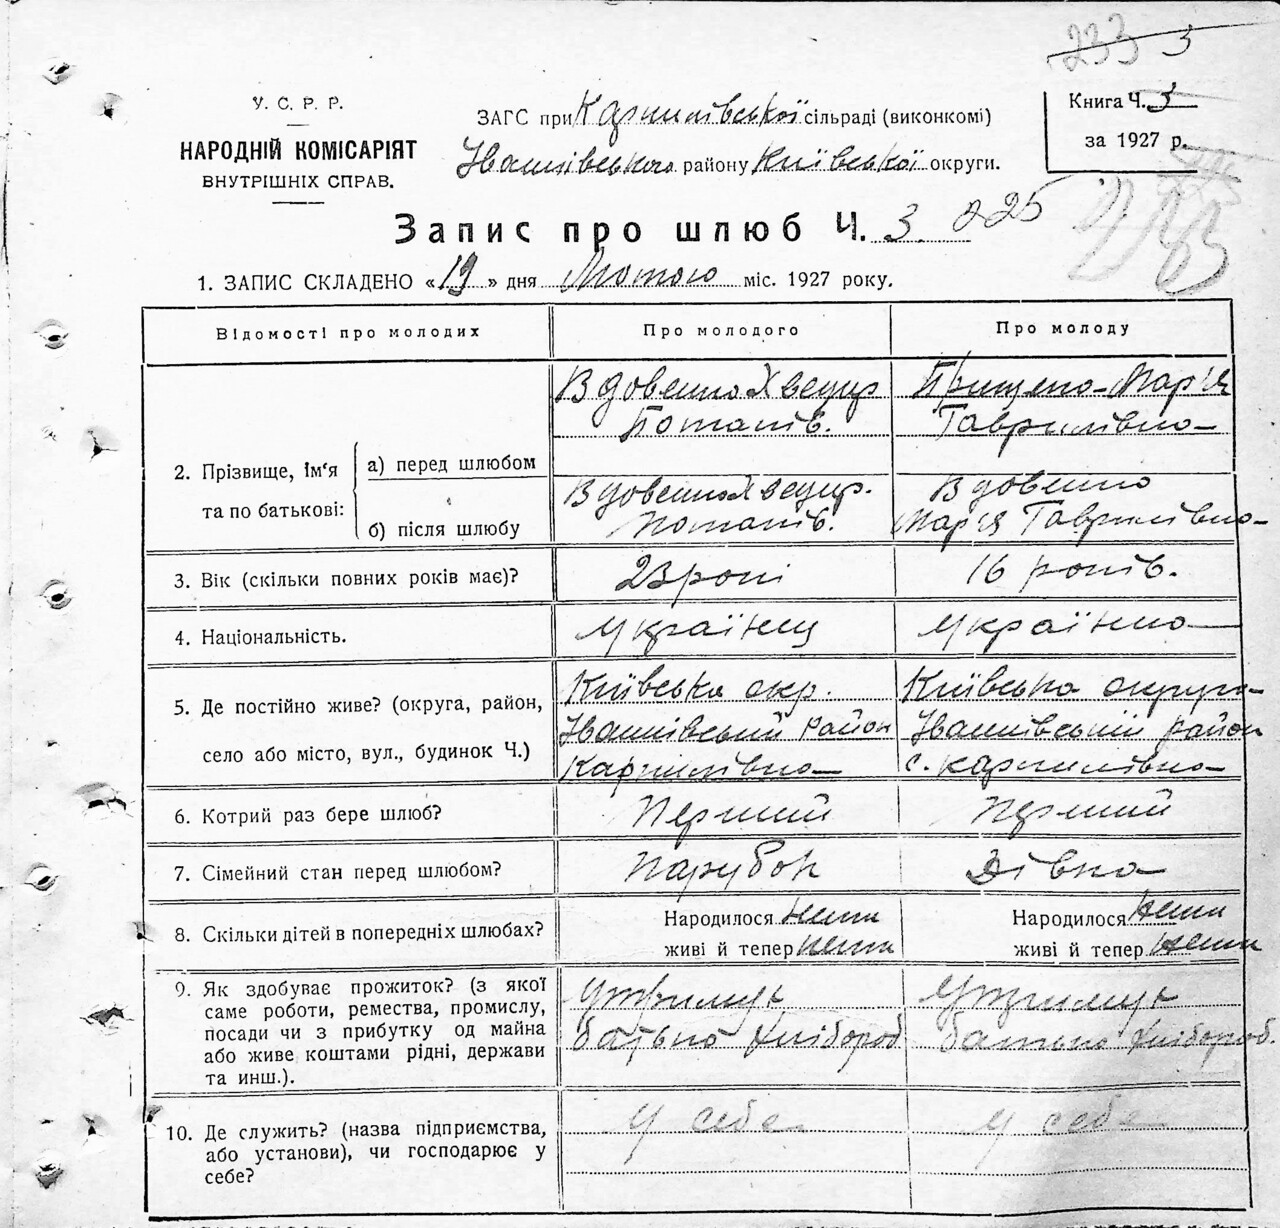 233 3
У. С. Р. Р.
НАРОДНІЙ КОМІСАРІЯТ
ВНУТРІШНІХ СПРАВ.
ЗАГС при Карпилівської сільраді (виконкомі)
Іванківського району Київської округи.
Книга Ч. 3
за 1927 р.
Запис про шлюб Ч. 3. 225
1. ЗАПИС СКЛАДЕНО «19» дня Лютого міс. 1927 року.
Відомості про молодих Про молодого Про молоду
2. Прізвище, ім'я та по батькові:
а) перед шлюбом
Вдовенко Хведир
Потапів.
Прищепа Мар'я
Гаврилівна
б) після шлюбу
Вдовенко Хведир.
Потапів.
Вдовенко
Мар'я Гаврилівна
3. Вік (скільки повних років має)? 23 рокі 16 років.
4. Національність. Українец Українка
5. Де постійно живе? (округа, район,
село або місто, вул., будинок Ч.)
Київська окр.
Іванківський район
Карпилівка
Київська округа
Іванківський район
с. Карпилівка
6. Котрий раз бере шлюб? Перший Перший
7. Сімейний стан перед шлюбом? Парубок Дівка
8. Скільки дітей в попередніх шлюбах?
Народилося нема
живі й тепер нема
Народилося нема
живі й тепер нема
9. Як здобуває прожиток? (з якої
саме роботи, ремества, промислу,
посади чи з прибутку од майна
або живе коштами рідні, держави
та инш.).
батько хлібороб
батько хлібороб.
10. Де служить? (назва підприємства,
або установи), чи господарює у
себе?
У себе
У себе